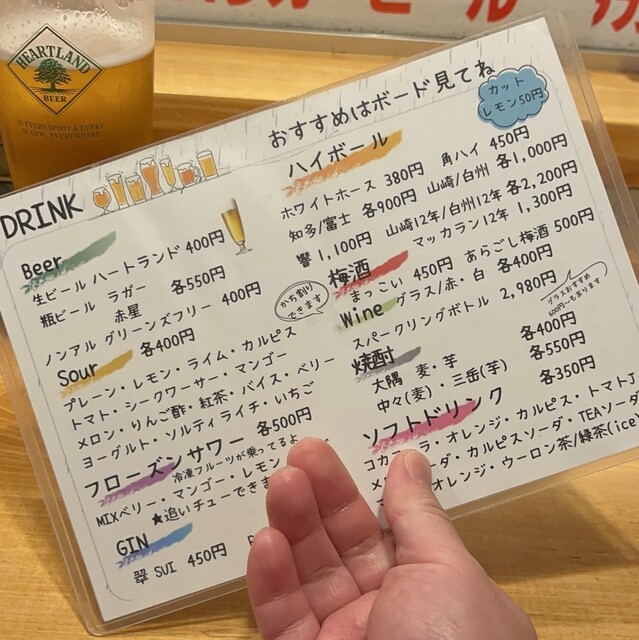 HEARTLAND
BEER
IN EVERY SPIRIT & EVERY
SEASON, EVERYWHERE
おすすめはボード見てね
カット
レモン50円
DRINK
Beer
生ビール ハートランド 400円
瓶ビール ラガー 各550円
赤星
ノンアル グリーンズフリー 400円
Sour 各400円
プレーン・レモン・ライム・カルピス
トマト・シークワーサー・マンゴー
メロン・りんご酢・紅茶・バイス・ベリー
ヨーグルト・ソルティライチ・いちご
フローズンサワー 各500円
冷凍フルーツが乗ってるよ
MIXベリー・マンゴー・レモン
★追いチューできま
GIN
翠 SUI 450円
ハイボール
ホワイトホース 380円 角ハイ 450円
知多/富士 各900円 山崎/白州 各1,000円
響 1,100円 山崎12年/白州12年 各2,200円
マッカラン12年 1,300円
梅酒
かち割り
できます
まっこい 450円 あらごし梅酒 500円
Wine グラス/赤・白 各400円
スパークリングボトル 2,980円
グラスおすすめ
600円〜もあります
焼酎
大隅 麦・芋 各400円
中々(麦)・三岳(芋) 各550円
ソフトドリンク 各350円
コカ ラ・オレンジ・カルピス・トマトJ
ダ・カルピスソーダ・TEAソーダ
オレンジ・ウーロン茶/緑茶(ice